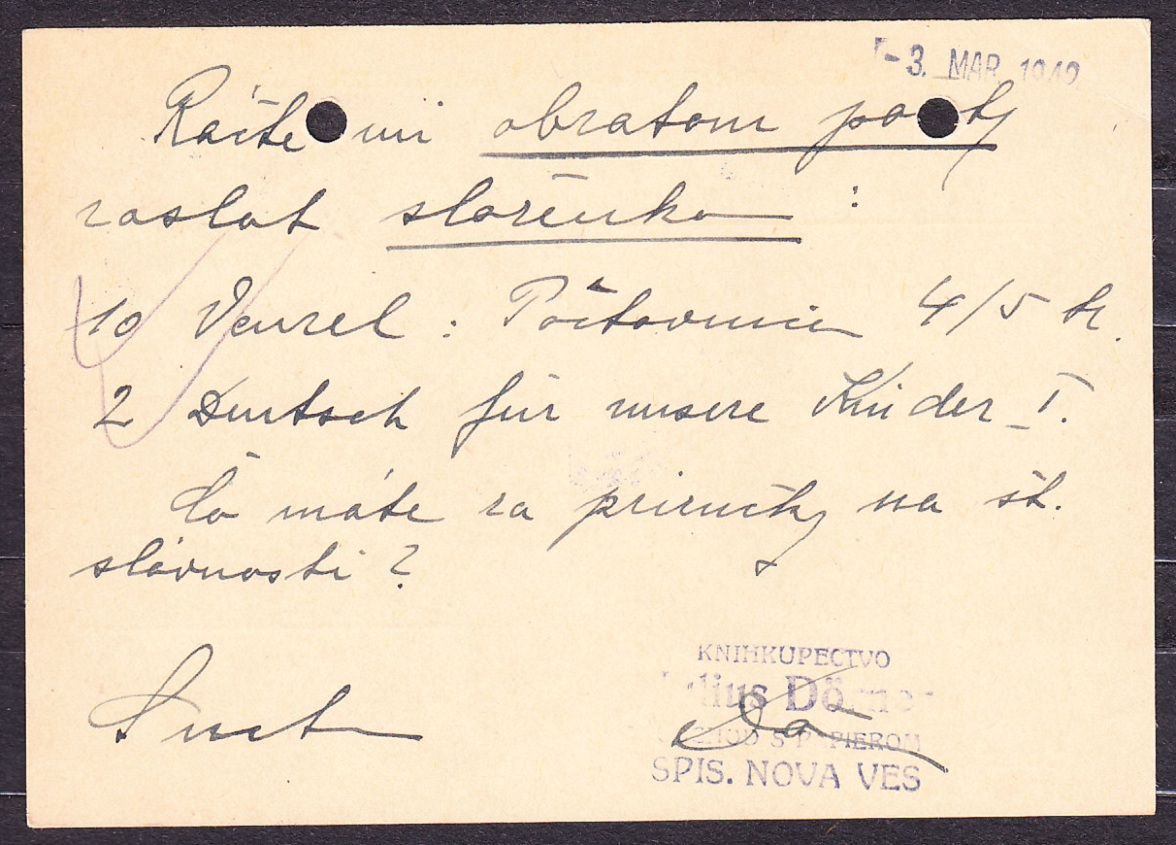 -3. MAR. 1942
Račte mi obratom pošty
zaslať složenku :
10 Venzel : Počtovnica 4/5 tr.
2 Deutsch für unsere Kinder I.
Čo máte za príručky na šk.
slávnosti ?
KNIHKUPECTVO
Július Dörner
OBCHOD S PAPIEROM
SPIS. NOVA VES